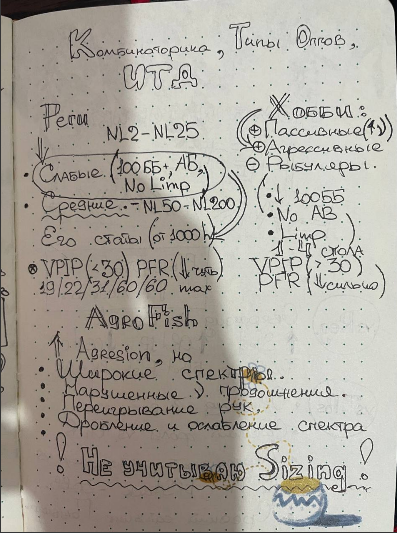 Комбинаторика, Типы Оппов,
ИТД
Реги
NL2-NL25
• Слабые (100ББ+, АБ,
No Limp)
• Средние. - NL50-NL200
Его статы (от 1000h)
VPIP (<30) PFR (↓чуть)
19/22/31/60/60 max
Хобби:
⊕ Пассивные
⊕ Агрессивные
⊖ Регуляры.
• ↓ 100ББ
• No АБ
• Limp
1-4 стола
VPIP (>30)
PFR (↓сильно)
Agro Fish
↑ Agresion, но
• Широкие спектры.
• Нарушенные продолжения.
• Переигрывание рук.
• Дробление и ослабление спектра
! Не учитываю Sizing !